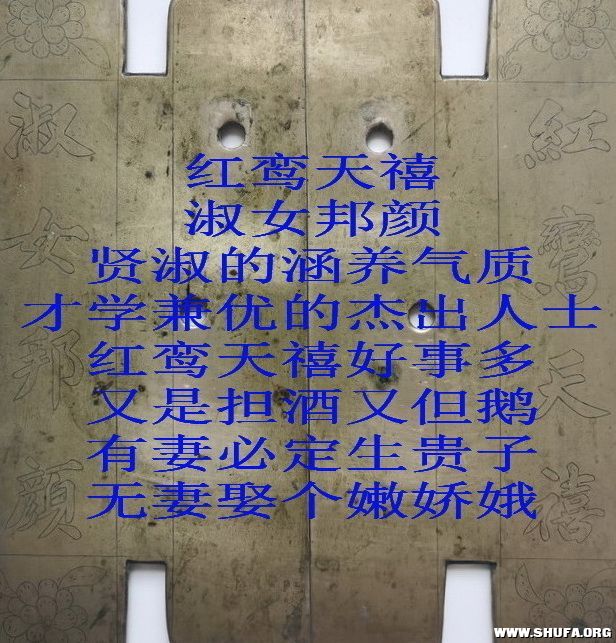 红鸾天禧
淑女邦颜
贤淑的涵养气质
才学兼优的杰出人士
红鸾天禧好事多
又是担酒又但鹅
有妻必定生贵子
无妻娶个嫩娇娥
紅鸞天禧
淑女邦顔
WWW.SHUFA.ORG